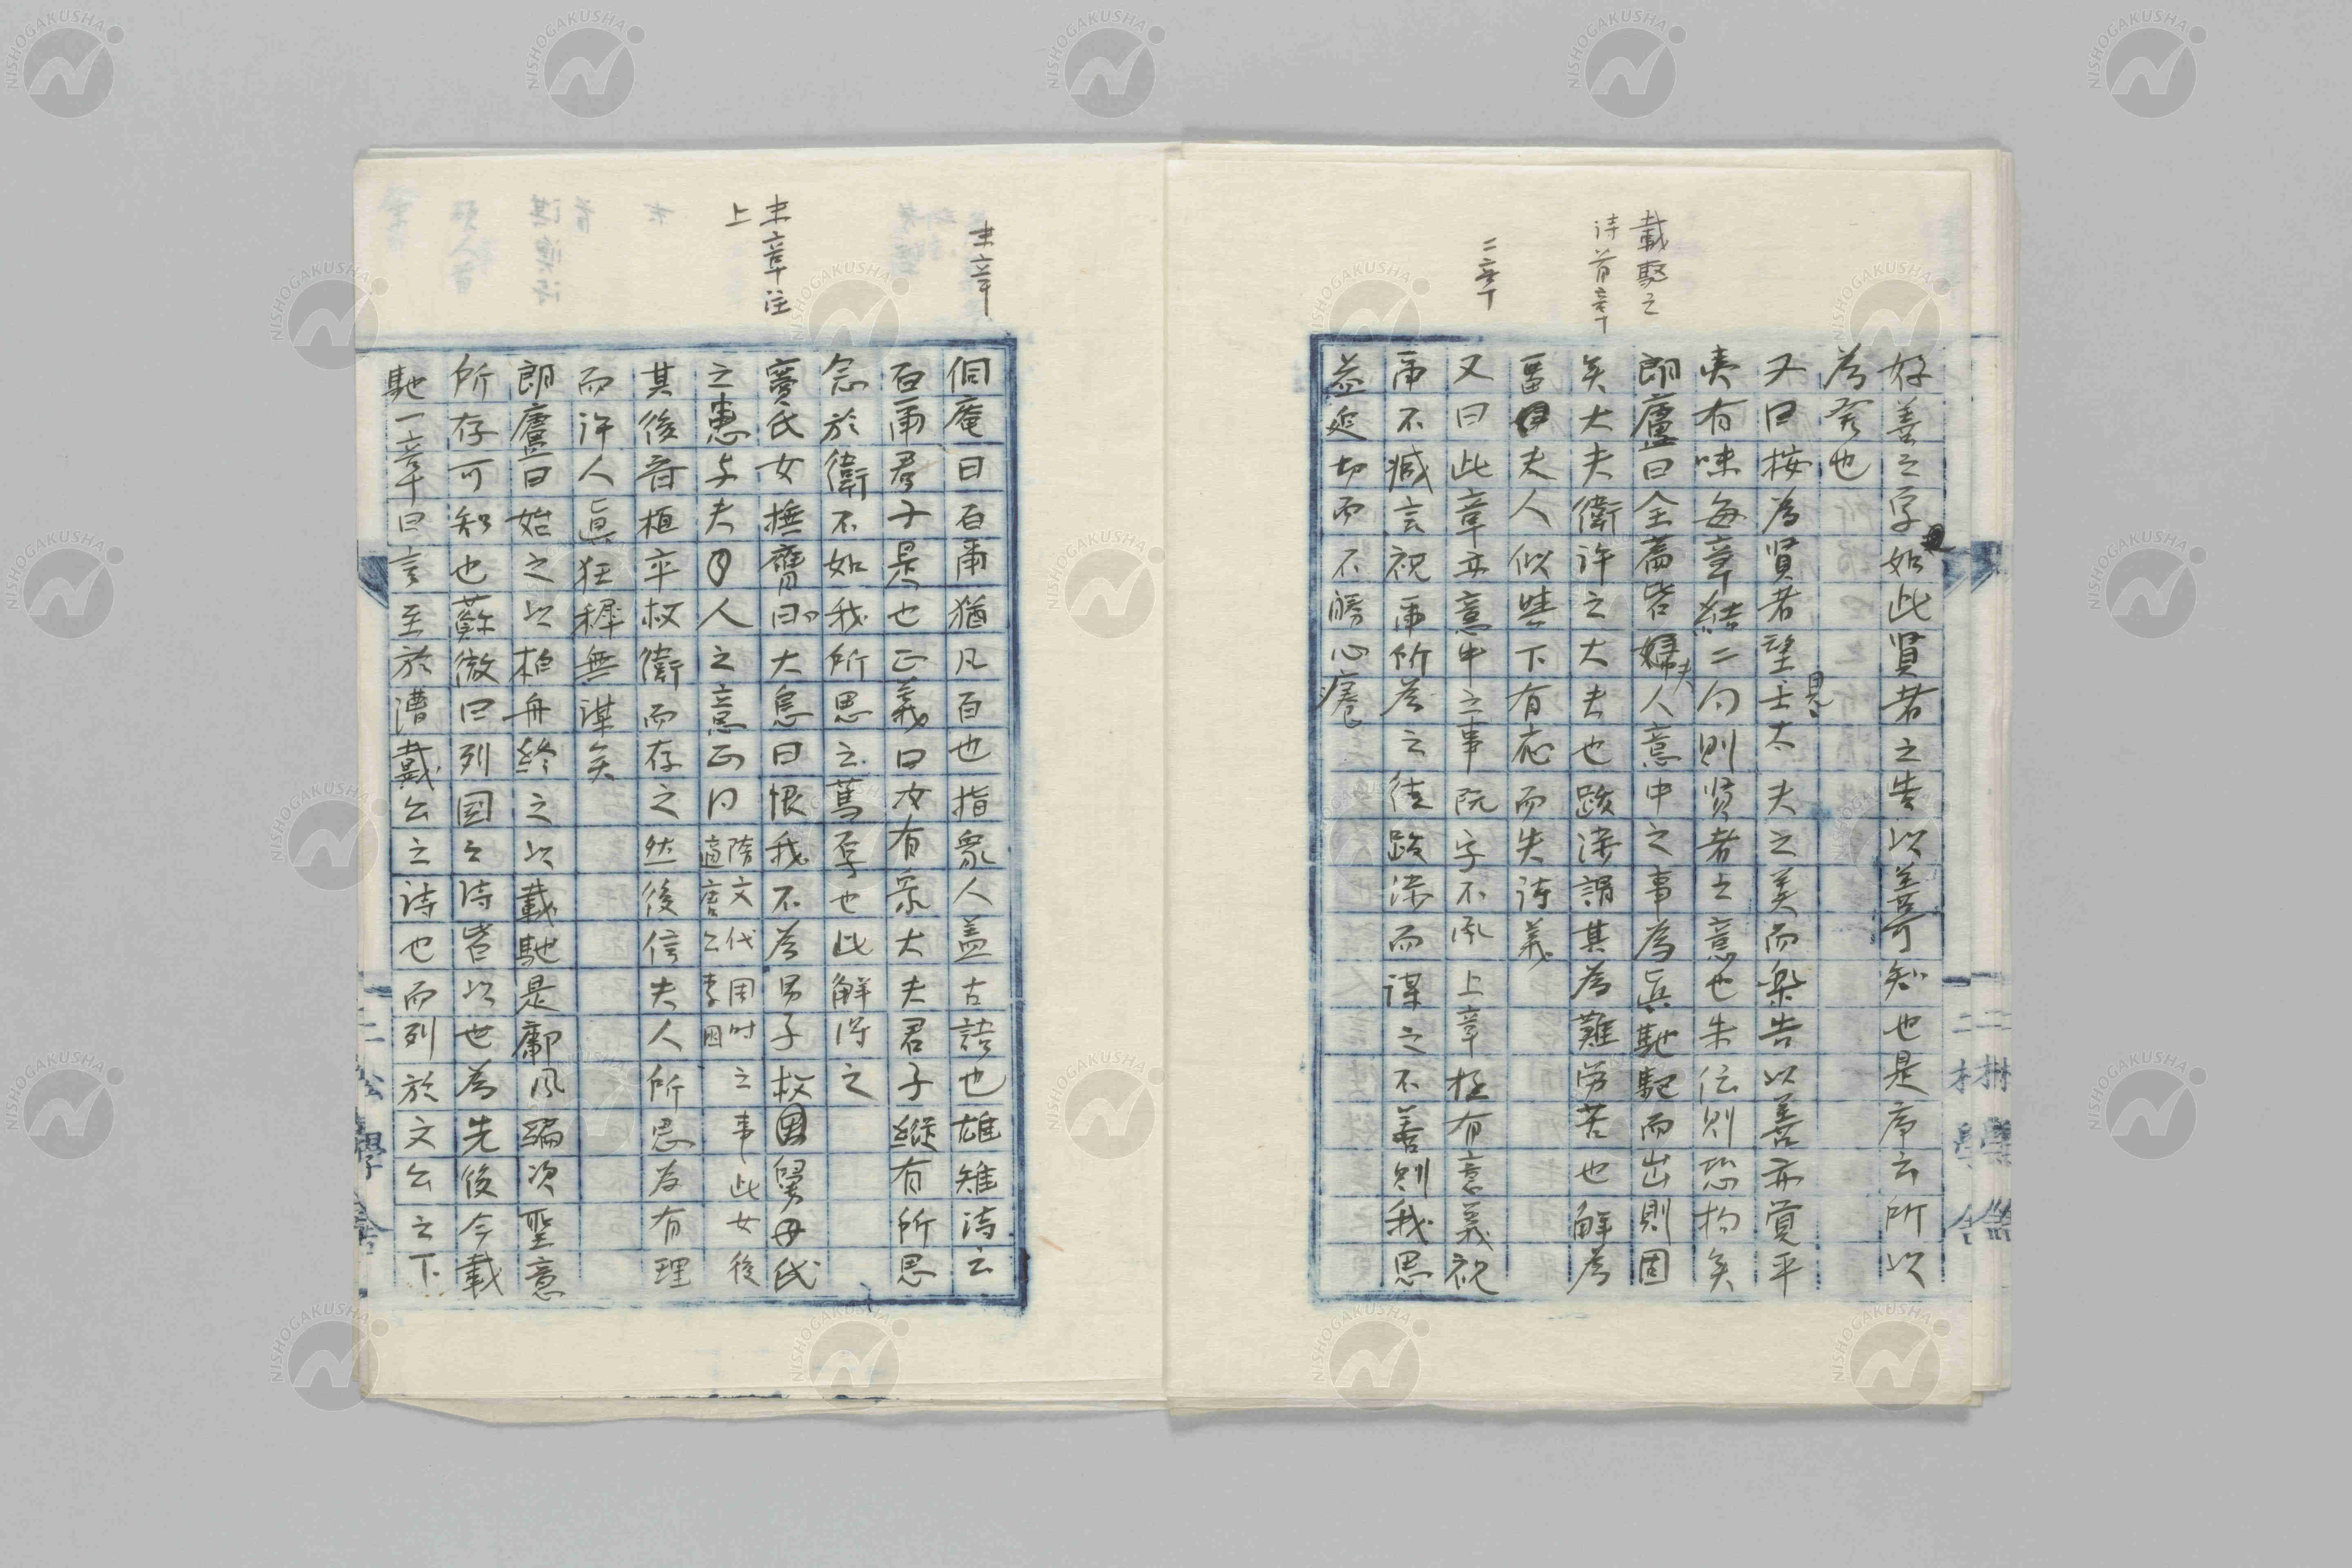 好善之字如此賢者之告以善可知也是序云所以
為序也
又曰按為賢者望見士大夫之美而樂告以善亦覺平
夷有味每章結二句則賢者之意也朱伝則恐拘矣
載馳之
詩首章
朗廬曰全篇皆婦夫人意中之事為真馳駆而出則固
矣大夫衛許之大夫也跋渉謂其為難労苦也解為
罾夫人似咥下有応而失詩義
二章
又曰此章亦意中之事既字不承上章極有意義視
爾不臧言視爾所為之徒跋渉而謀之不善則我思
益延切而不勝心癢
末章
侗庵曰百爾猶凡百也指衆人蓋古語也雄雉詩云
百爾君子是也正義曰汝有衆大夫君子縦有所思
念於衛不如我所思之篤厚也此解得之
末章注
上
竇氏女捶膺曰大息曰恨我不為男子救舅母氏
之患与夫人之意正同隋文代周時適唐公李困之事此女後
其後斉桓卒救衛而存之然後信夫人所思為有理
而許人真狂穉無謀矣
朗廬曰始之以柏舟終之以載馳是鄘風編次聖意
所存可知也蘇徹曰列国之詩皆以世為先後今載
馳一章曰言至於漕戴公之詩也而列於文公之下
二松學舎